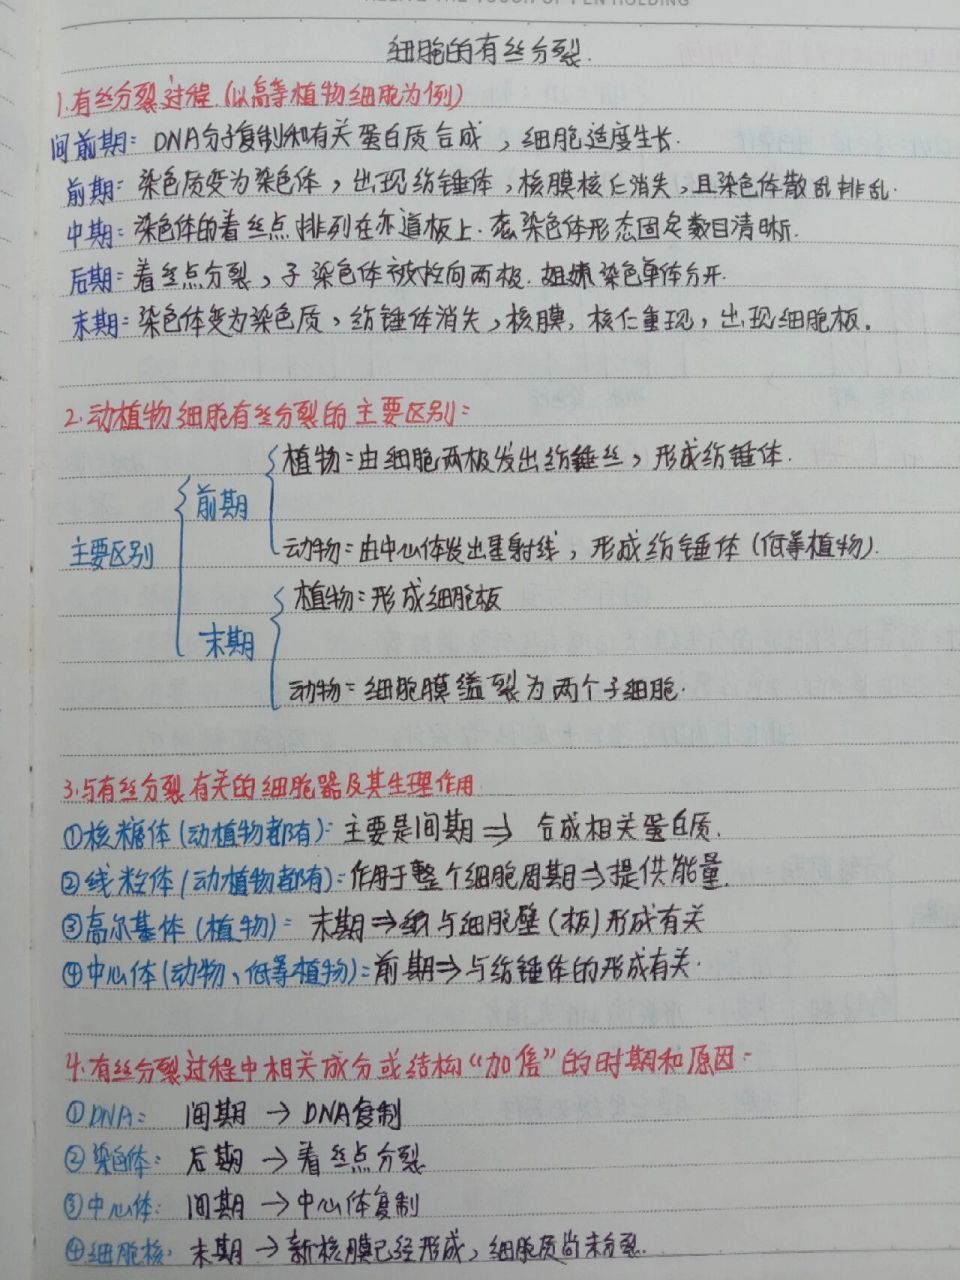 RELIVE THE TOUCH OF PEN HOLDING
细胞的有丝分裂.
1.有丝分裂过程.(以高等植物细胞为例)
间前期: DNA分子复制和有关蛋白质合成,细胞适度生长.
前期: 染色质变为染色体,出现纺锤体,核膜核仁消失,且染色体散乱排乱.
中期: 染色体的着丝点排列在赤道板上.染色体形态固定数目清晰.
后期: 着丝点分裂,子染色体被拉向两极.姐妹染色单体分开.
末期: 染色体变为染色质,纺锤体消失,核膜,核仁重现,出现细胞板。
2.动植物细胞有丝分裂的主要区别:
植物:由细胞两极发出纺锤丝,形成纺锤体.
前期
主要区别
动物:由中心体发出星射线,形成纺锤体(低等植物).
植物:形成细胞板
末期
动物:细胞膜缢裂为两个子细胞.
3.与有丝分裂有关的细胞器及其生理作用
①核糖体(动植物都有): 主要是间期⇒ 合成相关蛋白质.
②线粒体(动植物都有): 作用于整个细胞周期⇒提供能量.
③高尔基体(植物): 末期⇒与细胞壁(板)形成有关
④中心体(动物、低等植物): 前期⇒与纺锤体的形成有关.
4.有丝分裂过程中相关成分或结构“加倍”的时期和原因:
①DNA: 间期 → DNA复制
②染色体: 后期 → 着丝点分裂
③中心体: 间期 → 中心体复制
④细胞核: 末期 → 新核膜已经形成,细胞质尚未分裂.